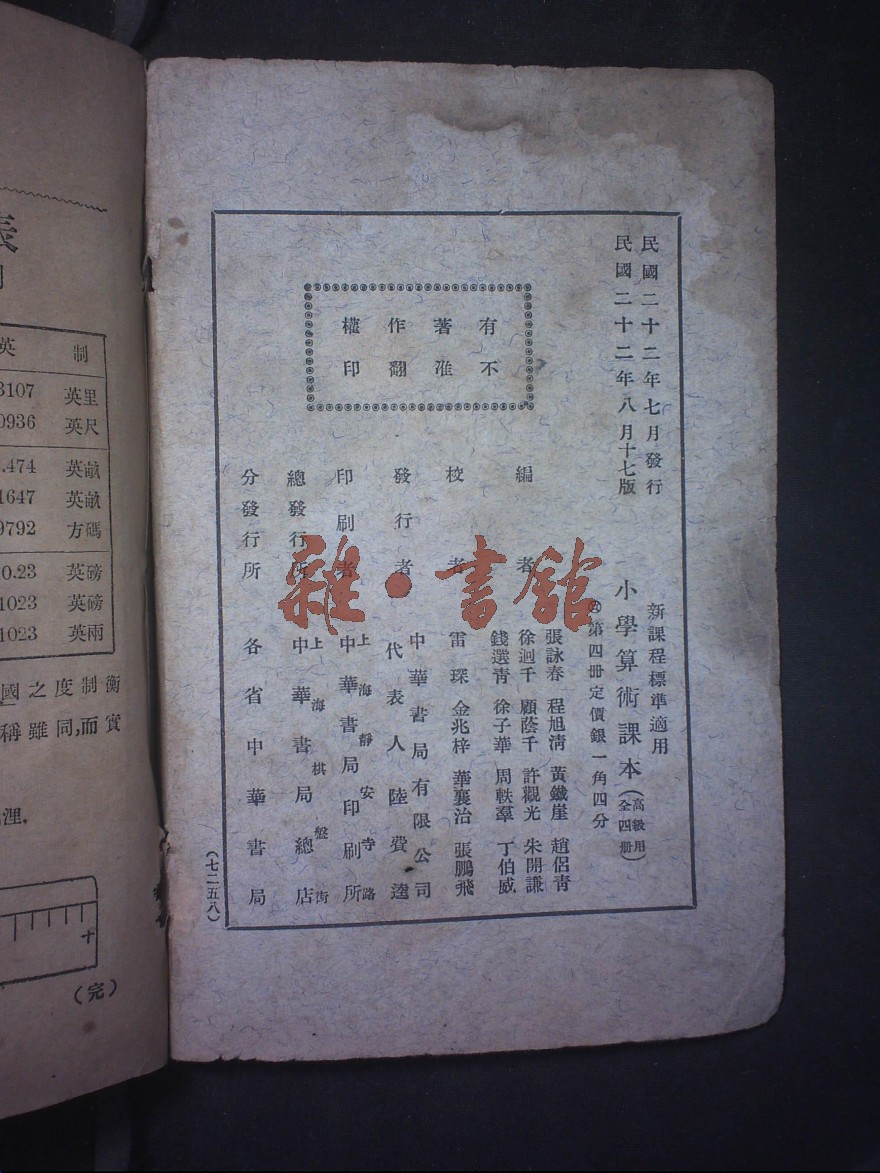 民國二十二年七月發行
民國二十二年八月十七版
新課程標準適用
小學算術課本(高級用全四冊)
第四冊定價銀一角四分
有著作權
不准翻印
編者
張詠春 程旭清 黃鐵崖 趙侶青
徐迥千 顧蔭千 許觀光 朱開謙
錢選青 徐子華 周軼羣 丁伯威
校者 雷琛 金兆梓 華襄治 張鵬飛
發行者 中華書局有限公司
代表人 陸費逵
印刷者 上海靜安寺路
中華書局印刷所
總發行所 上海棋盤街
中華書局總店
分發行所 各省中華書局
(七二五八)
雜·書館
表
英制
3107 英里
0936 英尺
.474 英畝
1647 英畝
9792 方碼
0.23 英磅
1023 英磅
1023 英兩
國之度制衡
稱雖同,而實
浬.
十
(完)